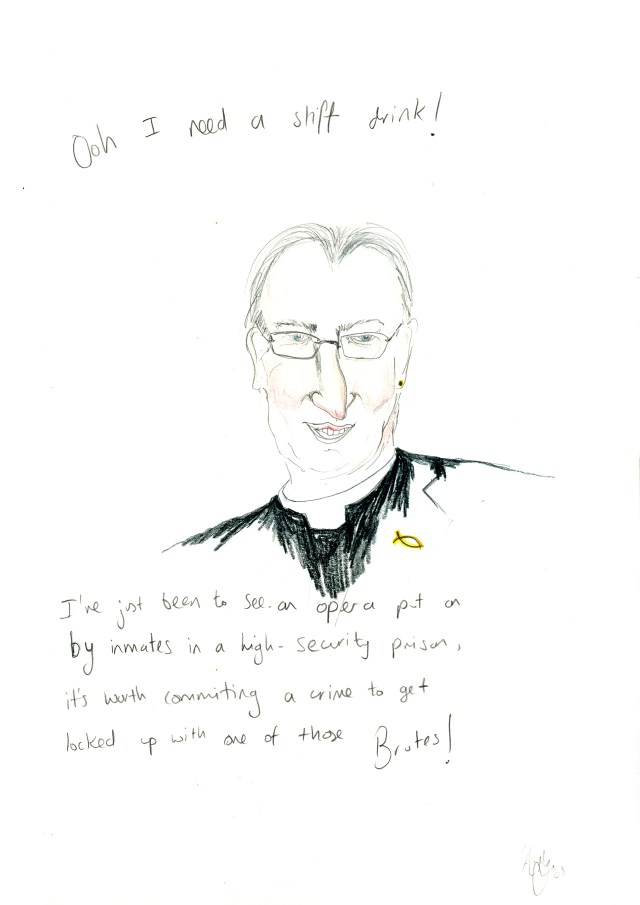 Ooh I need a stiff drink!
I've just been to see an opera put on
by inmates in a high-security prison,
it's worth commiting a crime to get
locked up with one of those Brutes!